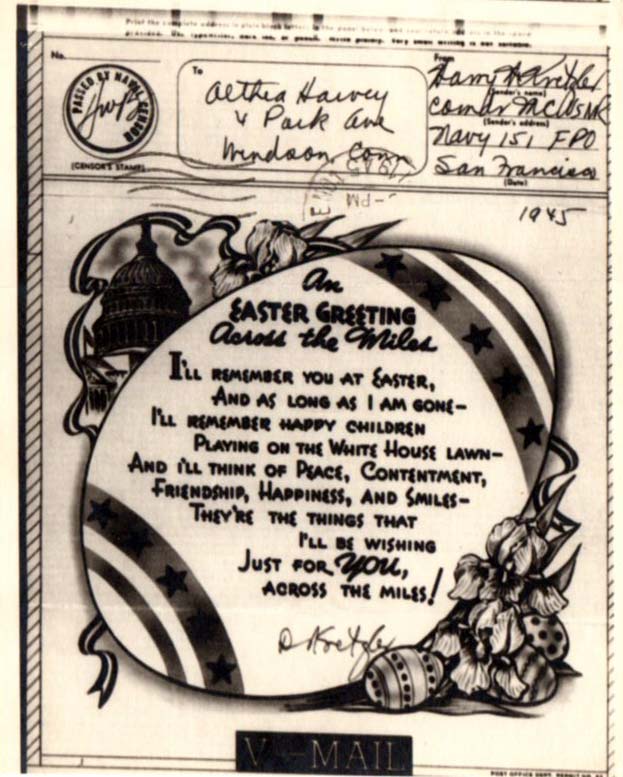 Print the complete address in plain block letters in the panel below, and your return address in the space
provided. Use typewriter, dark ink, or pencil. Write plainly. Very small writing is not suitable.
No.
PASSED BY NAVAL CENSOR
(CENSOR'S STAMP)
To
Althea Harvey
4 Park Ave
Windsor, Conn
From
Harry D Kretzler
(Sender's name)
(Sender's address)
Navy 151 FPO
San Francisco
(Date)
1945
PM
An
EASTER GREETING
Across the Miles
I'LL REMEMBER YOU AT EASTER,
AND AS LONG AS I AM GONE—
I'LL REMEMBER HAPPY CHILDREN
PLAYING ON THE WHITE HOUSE LAWN—
AND I'LL THINK OF PEACE, CONTENTMENT,
FRIENDSHIP, HAPPINESS, AND SMILES—
THEY'RE THE THINGS THAT
I'LL BE WISHING
JUST FOR YOU,
ACROSS THE MILES!
D Kretzler
V-MAIL
POST OFFICE DEPT. PERMIT NO.